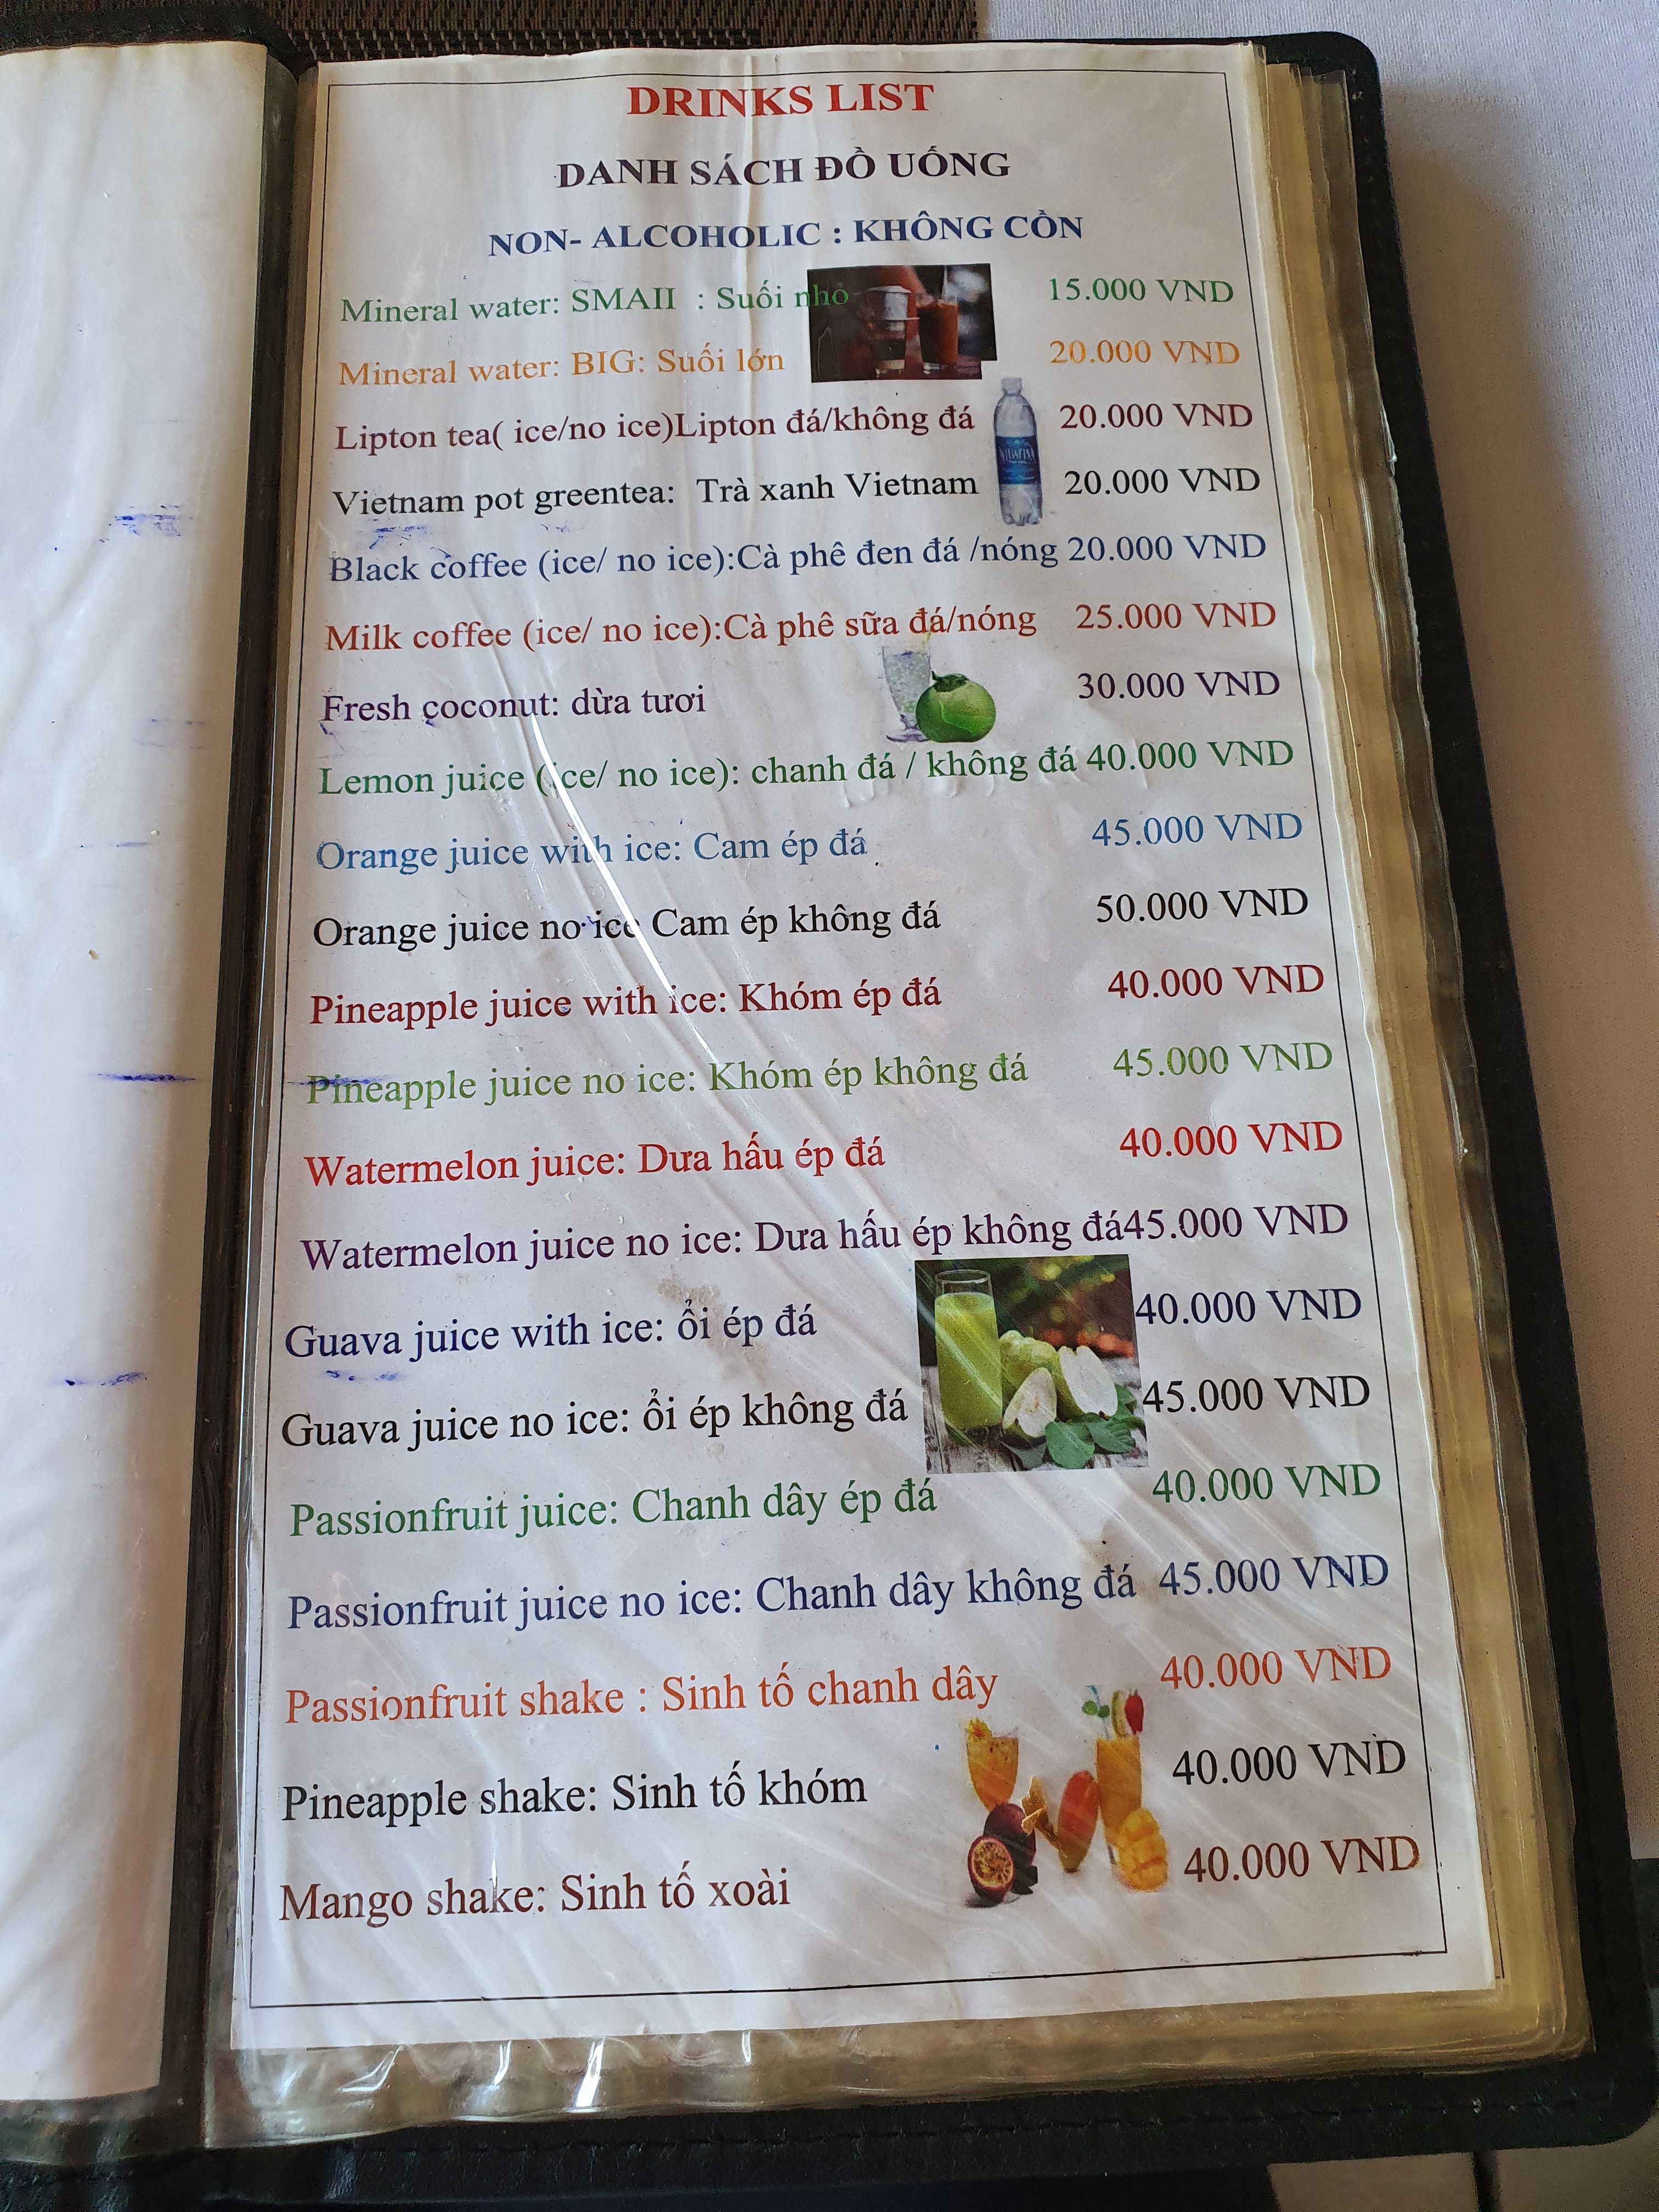 DRINKS LIST
DANH SÁCH ĐỒ UỐNG
NON- ALCOHOLIC : KHÔNG CỒN
Mineral water: SMAII : Suối nhỏ 15.000 VND
Mineral water: BIG: Suối lớn 20.000 VND
Lipton tea( ice/no ice)Lipton đá/không đá 20.000 VND
Vietnam pot greentea: Trà xanh Vietnam 20.000 VND
Black coffee (ice/ no ice):Cà phê đen đá /nóng 20.000 VND
Milk coffee (ice/ no ice):Cà phê sữa đá/nóng 25.000 VND
Fresh coconut: dừa tươi 30.000 VND
Lemon juice (ice/ no ice): chanh đá / không đá 40.000 VND
Orange juice with ice: Cam ép đá 45.000 VND
Orange juice no ice Cam ép không đá 50.000 VND
Pineapple juice with ice: Khóm ép đá 40.000 VND
Pineapple juice no ice: Khóm ép không đá 45.000 VND
Watermelon juice: Dưa hấu ép đá 40.000 VND
Watermelon juice no ice: Dưa hấu ép không đá45.000 VND
Guava juice with ice: ổi ép đá 40.000 VND
Guava juice no ice: ổi ép không đá 45.000 VND
Passionfruit juice: Chanh dây ép đá 40.000 VND
Passionfruit juice no ice: Chanh dây không đá 45.000 VND
Passionfruit shake : Sinh tố chanh dây 40.000 VND
Pineapple shake: Sinh tố khóm 40.000 VND
Mango shake: Sinh tố xoài 40.000 VND